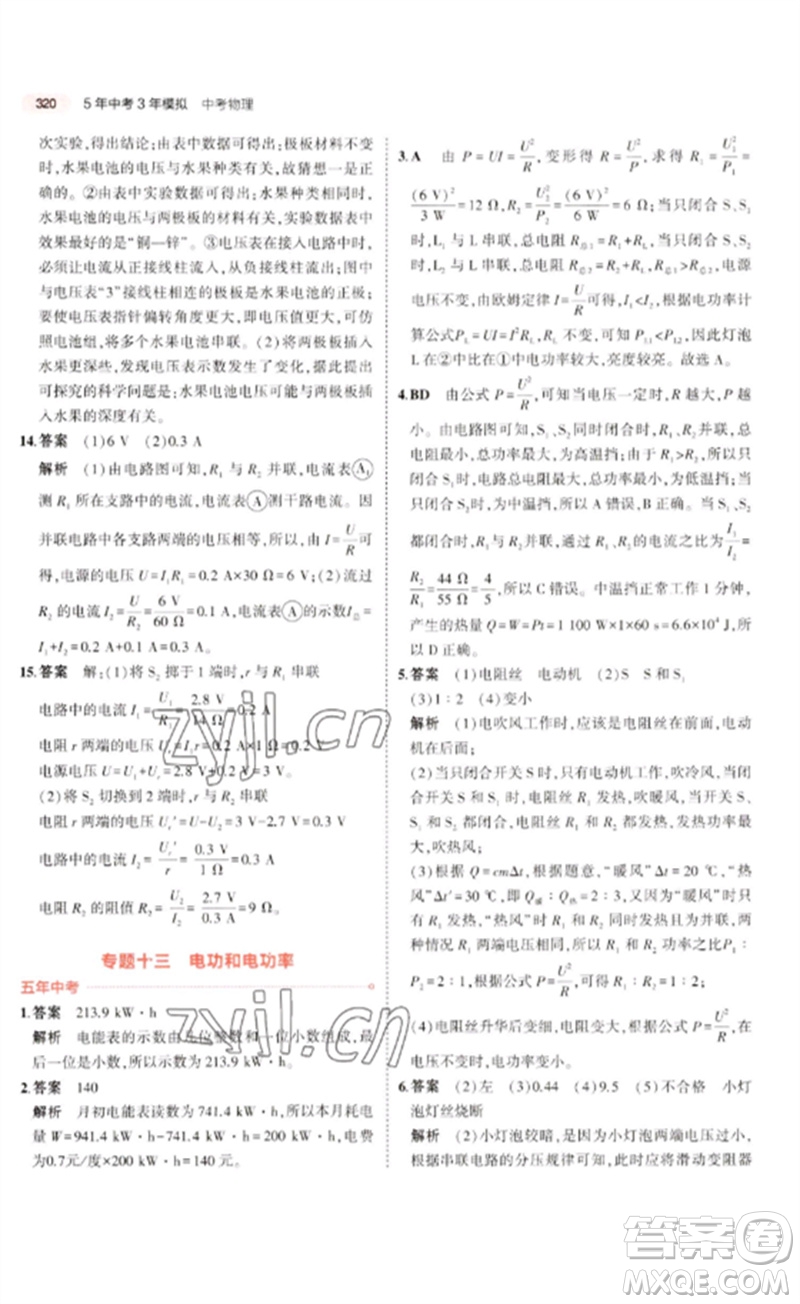 320 5年中考3年模拟 中考物理
次实验,得出结论;由表中数据可得出:极板材料不变
时,水果电池的电压与水果种类有关,故猜想一是正
确的。②由表中实验数据可得出:水果种类相同时,
水果电池的电压与两极板的材料有关,实验数据表中
效果最好的是“铜—锌”。③电压表在接入电路中时,
必须让电流从正接线柱流入,负接线柱流出;图中
与电压表“3”接线柱相连的极板是水果电池的正极;
要使电压表指针偏转角度更大,即电压值更大,可仿
照电池组,将多个水果电池串联。(2)两极板插入
水果深度不同,发现电压表示数发生了变化,据此提出
可探究的科学问题是:水果电池电压可能与两极板插
入水果的深度有关。
14.答案 (1)6 V (2)0.3 A
解析 (1)由电路图可知,R₁ 与 R₂ 并联,电流表Ⓐ₁
测 R₁ 所在支路中的电流,电流表Ⓐ测干路电流。因
并联电路中各支路两端的电压相等,所以,由 I=U/R 可
得,电源的电压 U=I₁R₁=0.2 A×30 Ω=6 V;(2)流过
R₂ 的电流 I₂=U/R₂=6 V/60 Ω=0.1 A,电流表Ⓐ的示数 I总=
I₁+I₂=0.2 A+0.1 A=0.3 A。
15.答案 解:(1)将 S₂ 掷于 1 端时,r 与 R₁ 串联
电路中的电流 I₁=U₁/R₁=2.8 V/14 Ω=0.2 A
电阻 r 两端的电压 Uᵣ=I₁r=0.2 A×1 Ω=0.2 V
电源电压 U=U₁+Uᵣ=2.8 V+0.2 V=3 V
(2)将 S₂ 切换到 2 端时,r 与 R₂ 串联
电阻 r 两端的电压 Uᵣ'=U-U₂=3 V-2.7 V=0.3 V
电路中的电流 I₂=Uᵣ'/r=0.3 V/1 Ω=0.3 A
电阻 R₂ 的阻值 R₂=U₂/I₂=2.7 V/0.3 A=9 Ω
专题十三 电功和电功率
五年中考
1.答案 213.9 kW·h
解析 电能表的示数由五位整数和一位小数组成,最
后一位是小数,所以示数为 213.9 kW·h。
2.答案 140
解析 月初电能表读数为 741.4 kW·h,所以本月耗电
量 W=941.4 kW·h-741.4 kW·h=200 kW·h,电
费为0.7元/度×200 kW·h=140 元。
3.A 由 P=UI=U²/R,变形得 R=U²/P,求得 R₁=U₁²/P₁=
(6 V)²/3 W=12 Ω,R₂=U₂²/P₂=(6 V)²/6 W=6 Ω;当只闭合 S、S₁
时,L₁ 与 L 串联,总电阻 R总1=R₁+R_L,当只闭合 S、S₂
时,L₂ 与 L 串联,总电阻 R总2=R₂+R_L,R总1>R总2,电源
电压不变,由欧姆定律 I=U/R可得,I₁<I₂,根据电功率计
算公式P_L=UI=I²R_L,R_L 不变,可知 P_L1<P_L2,因此灯泡
L 在②中电功率较大,亮度较亮。故选 A。
4.BD 由公式 P=U²/R,可知当电压一定时,R 越大,P 越
小。由电路图可知,S₁、S₂ 同时闭合时,电路总电阻
最小,总功率最大,为高温挡;由于 R₁>R₂,只闭合
S₁时,电路总电阻最大,总功率最小,为低温挡;只闭
合 S₂时,为中温挡,所以 A 错误,B 正确。当 S₁、S₂
都闭合时,通过 R₁ 和 R₂ 的电流之比为 I₁/I₂=
R₂/R₁=44 Ω/55 Ω=4/5,所以 C 错误。中温挡正常工作 1 分钟,
产生的热量 Q=W=Pt=1 100 W×1×60 s=6.6×10⁴ J,所
以 D 正确。
5.答案 (1)电阻丝 电动机 (2)S S和S₁
(3)1∶2 (4)变小
解析 (1)电吹风工作时,应该是电阻丝在前面,电动
机在后面;
(2)当只闭合开关 S 时,只有电动机工作,吹冷风,当
开关 S、S₁ 闭合时,电阻丝 R₁ 发热,吹暖风,当开关 S、
S₁、S₂ 都闭合时,电阻丝 R₁ 和 R₂ 发热,发热功率更
大,吹热风;
(3)根据 Q=cmΔt 可知,当“暖风”Δt=20 ℃,“热
风”Δt'=30 ℃,则 Q暖∶Q热=2∶3,又因为“暖风”时只
有 R₁ 发热,“热风”时 R₁、R₂ 同时发热且为并联,两
种情况 R₁ 两端电压不变,故功率之比 P₁∶
P₂=2∶1,根据公式 P=U²/R可知,R₁∶R₂=1∶2;
(4)电阻丝升华后变细,电阻变大,根据公式 P=U²/R,在
电压不变时,电功率变小。
6.答案 (2)左 (3)0.44 (4)9.5 (5)不合格 小灯
泡灯丝烧断
解析 (2)小灯泡较暗,是因为小灯泡两端电压过小,
根据串联电路的分压规律可知,此时应将滑动变阻器
zyjl.cn
zyjl.cn
答案圈
MXQE.COM